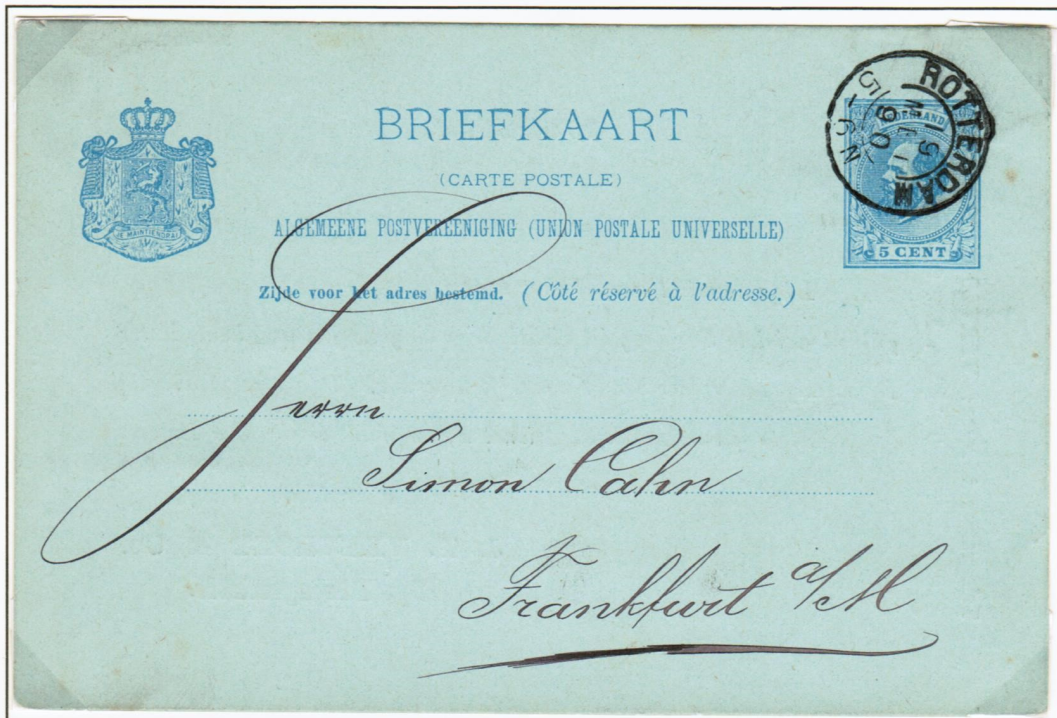 BRIEFKAART
(CARTE POSTALE)
ALGEMEENE POSTVEREENIGING (UNION POSTALE UNIVERSELLE)
Zijde voor het adres bestemd. (Côté réservé à l'adresse.)
JE MAINTIENDRAI
ROTTERDAM
5 CENT
Herrn
Simon Cahn
Frankfurt a/M